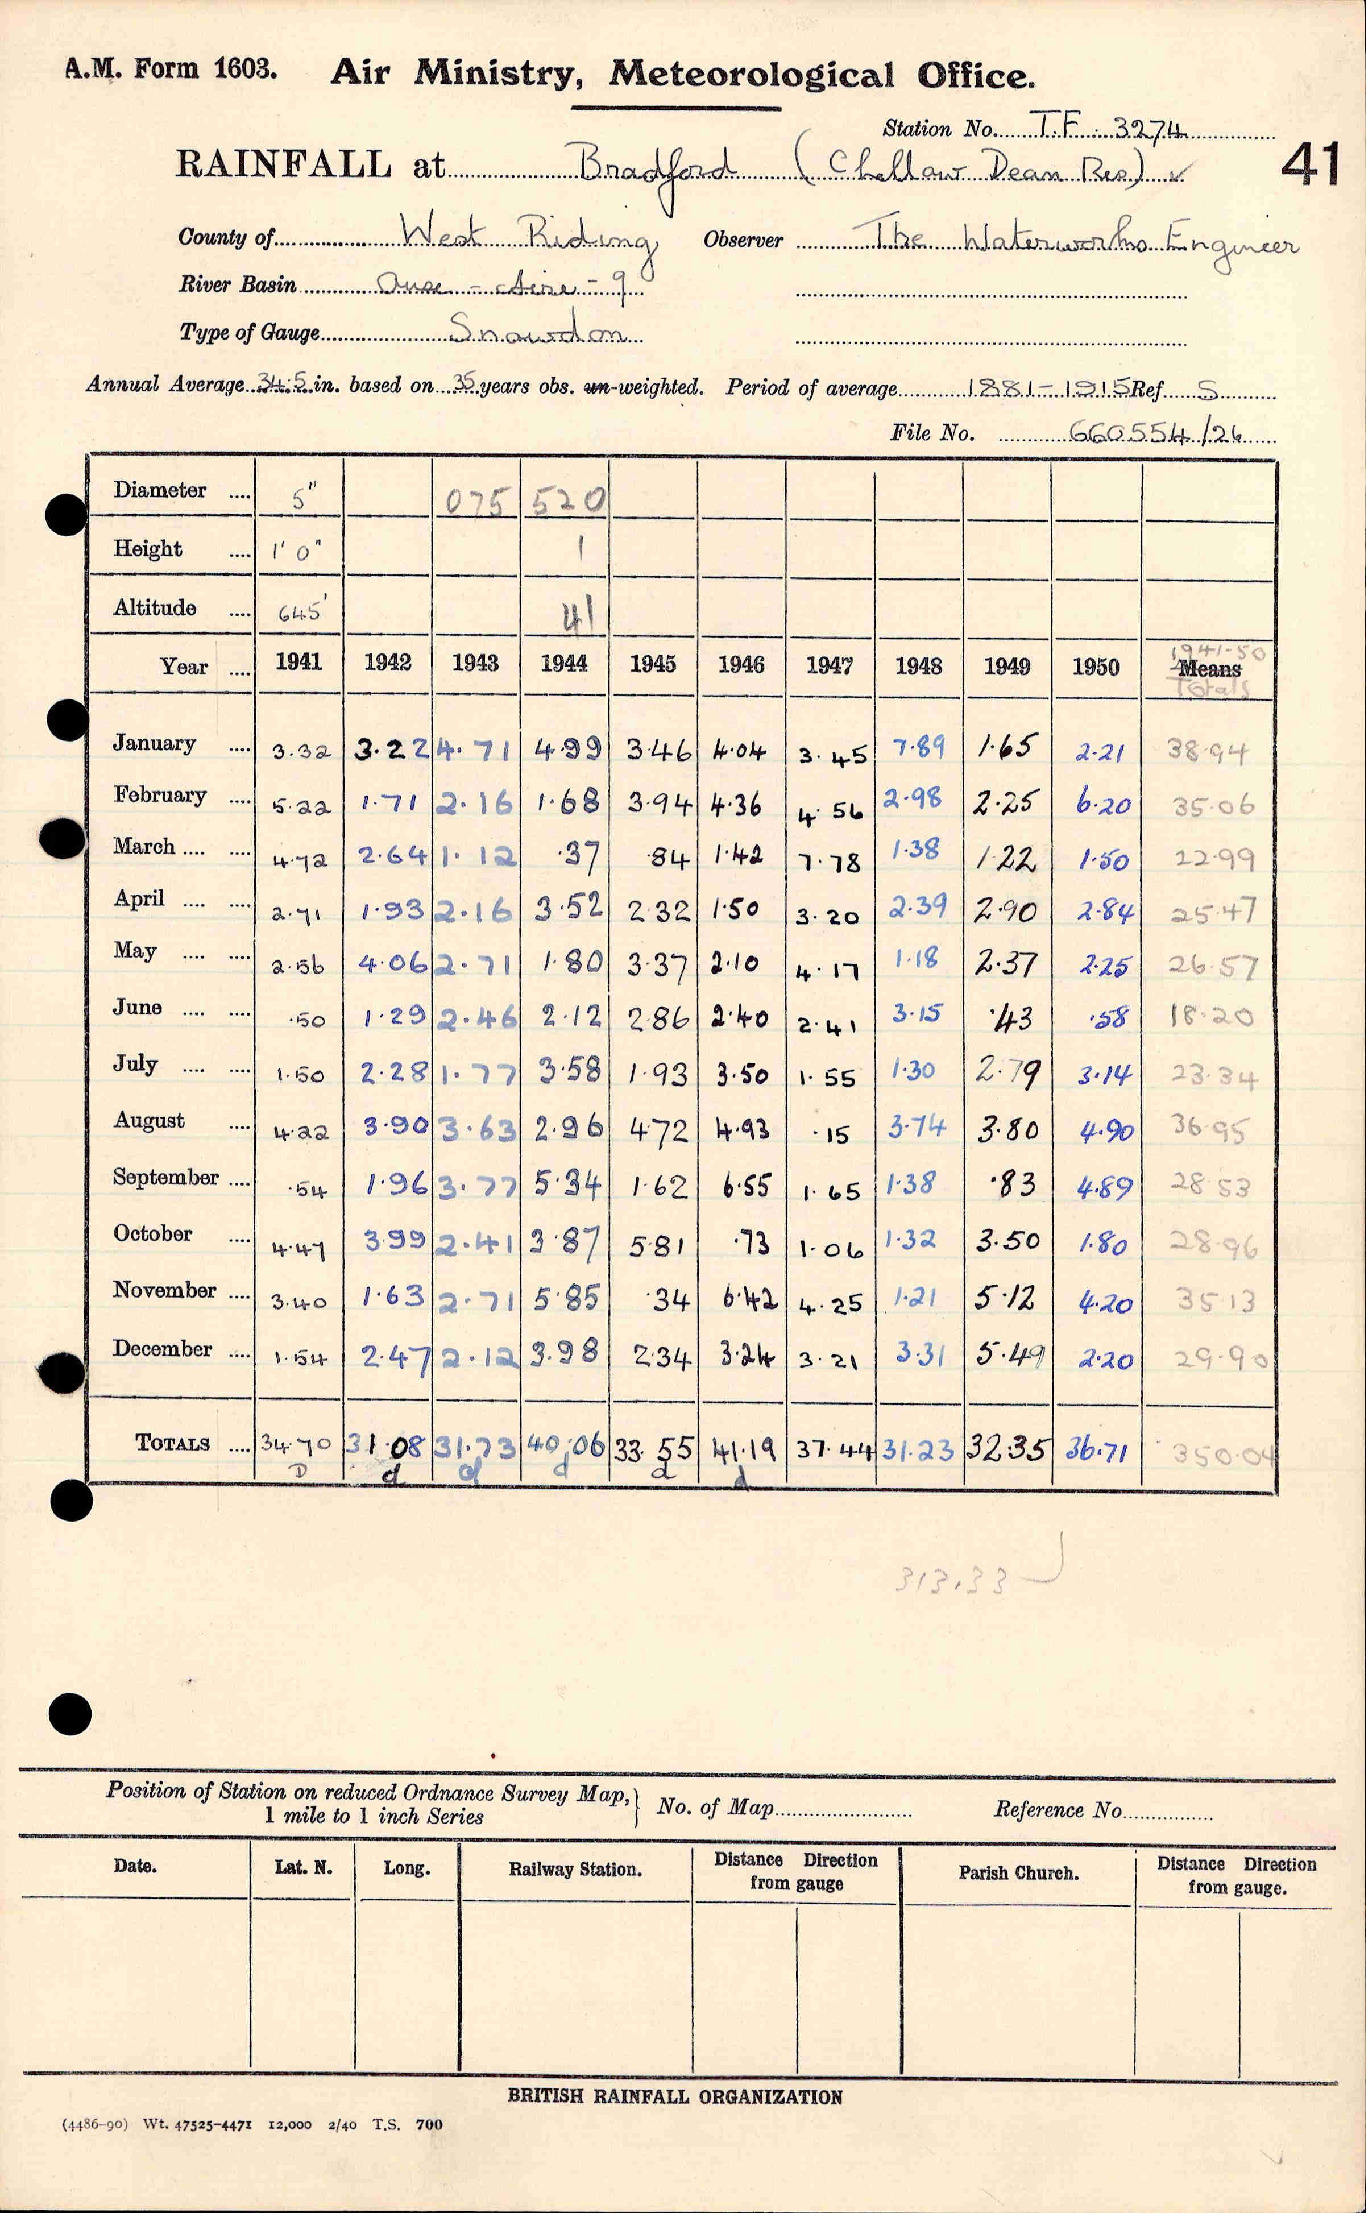 A.M. Form 1603. Air Ministry, Meteorological Office.
Station No. T.F. 3274
RAINFALL at Bradford (Chellow Dean Res) ✓ 41
County of West Riding Observer The Waterworks Engineer
River Basin Ouse - Aire - 9
Type of Gauge Snowdon
Annual Average 34.5 in. based on 35 years obs. un-weighted. Period of average 1881-1915 Ref S
File No. 660554/26
Diameter .... 5" 075 520
Height .... 1' 0" 1
Altitude .... 645' 41
Year .... 1941 1942 1943 1944 1945 1946 1947 1948 1949 1950 1941-50 Means Totals
January .... 3.32 3.22 4.71 4.99 3.46 4.04 3.45 7.89 1.65 2.21 38.94
February .... 5.22 1.71 2.16 1.68 3.94 4.36 4.56 2.98 2.25 6.20 35.06
March .... .... 4.72 2.64 1.12 .37 .84 1.42 7.78 1.38 1.22 1.50 22.99
April .... .... 2.71 1.93 2.16 3.52 2.32 1.50 3.20 2.39 2.90 2.84 25.47
May .... .... 2.56 4.06 2.71 1.80 3.37 2.10 4.17 1.18 2.37 2.25 26.57
June .... .... .50 1.29 2.46 2.12 2.86 2.40 2.41 3.15 .43 .58 18.20
July .... .... 1.50 2.28 1.77 3.58 1.93 3.50 1.55 1.30 2.79 3.14 23.34
August .... 4.22 3.90 3.63 2.96 4.72 4.93 .15 3.74 3.80 4.90 36.95
September .... .54 1.96 3.77 5.34 1.62 6.55 1.65 1.38 .83 4.89 28.53
October .... 4.47 3.99 2.41 3.87 5.81 .73 1.06 1.32 3.50 1.80 28.96
November .... 3.40 1.63 2.71 5.85 .34 6.42 4.25 1.21 5.12 4.20 35.13
December .... 1.54 2.47 2.12 3.98 2.34 3.24 3.21 3.31 5.49 2.20 29.90
TOTALS .... 34.70 31.08 31.73 40.06 33.55 41.19 37.44 31.23 32.35 36.71 350.04
D d d d d d
313.33
Position of Station on reduced Ordnance Survey Map, No. of Map Reference No.
1 mile to 1 inch Series
Date. Lat. N. Long. Railway Station. Distance Direction from gauge Parish Church. Distance Direction from gauge.
BRITISH RAINFALL ORGANIZATION
(4486-90) Wt. 47525-4471 12,000 2/40 T.S. 700